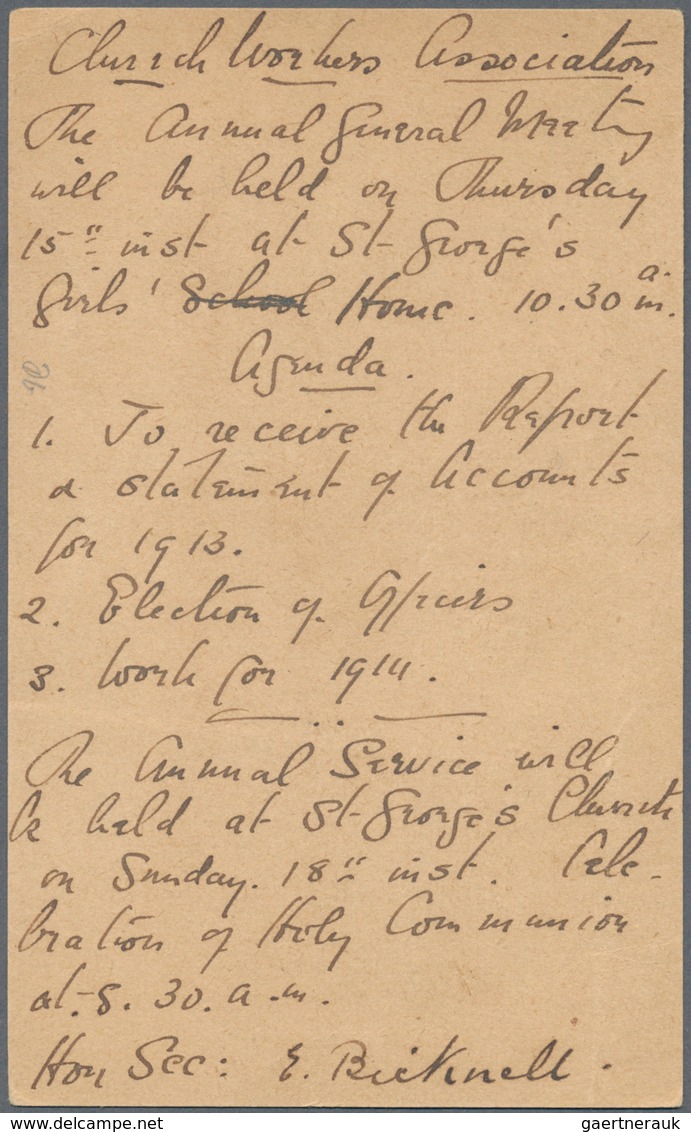 Church Workers Association
The Annual General Meeting
will be held on Thursday
15" inst at St George's
Girls' School Home. 10.30 a.m.
Agenda.
1. To receive the Report
& statement of Accounts
for 1913.
2. Election of Officers
3. Work for 1914.
The Annual Service will
be held at St George's Church
on Sunday. 18" inst. Cele-
bration of Holy Communion
at 8.30.a.m.
Hon Sec: E. Bicknell.
gaertnerauk